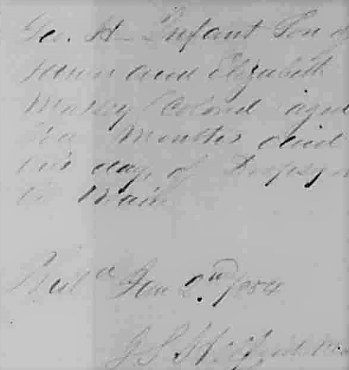 Geo. H Infant Son of
James and Elizabeth
Massey Colored aged
Months died
this day of Dropsy on
the Brain
Phil a Jan 2nd 1854